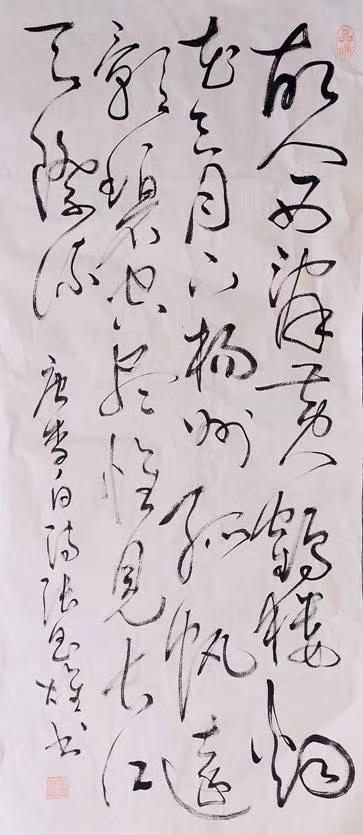 故人西辞黄鹤楼烟
花三月下杨州孤帆远
影碧空尽惟见长江
天际流
唐李白诗张雄书